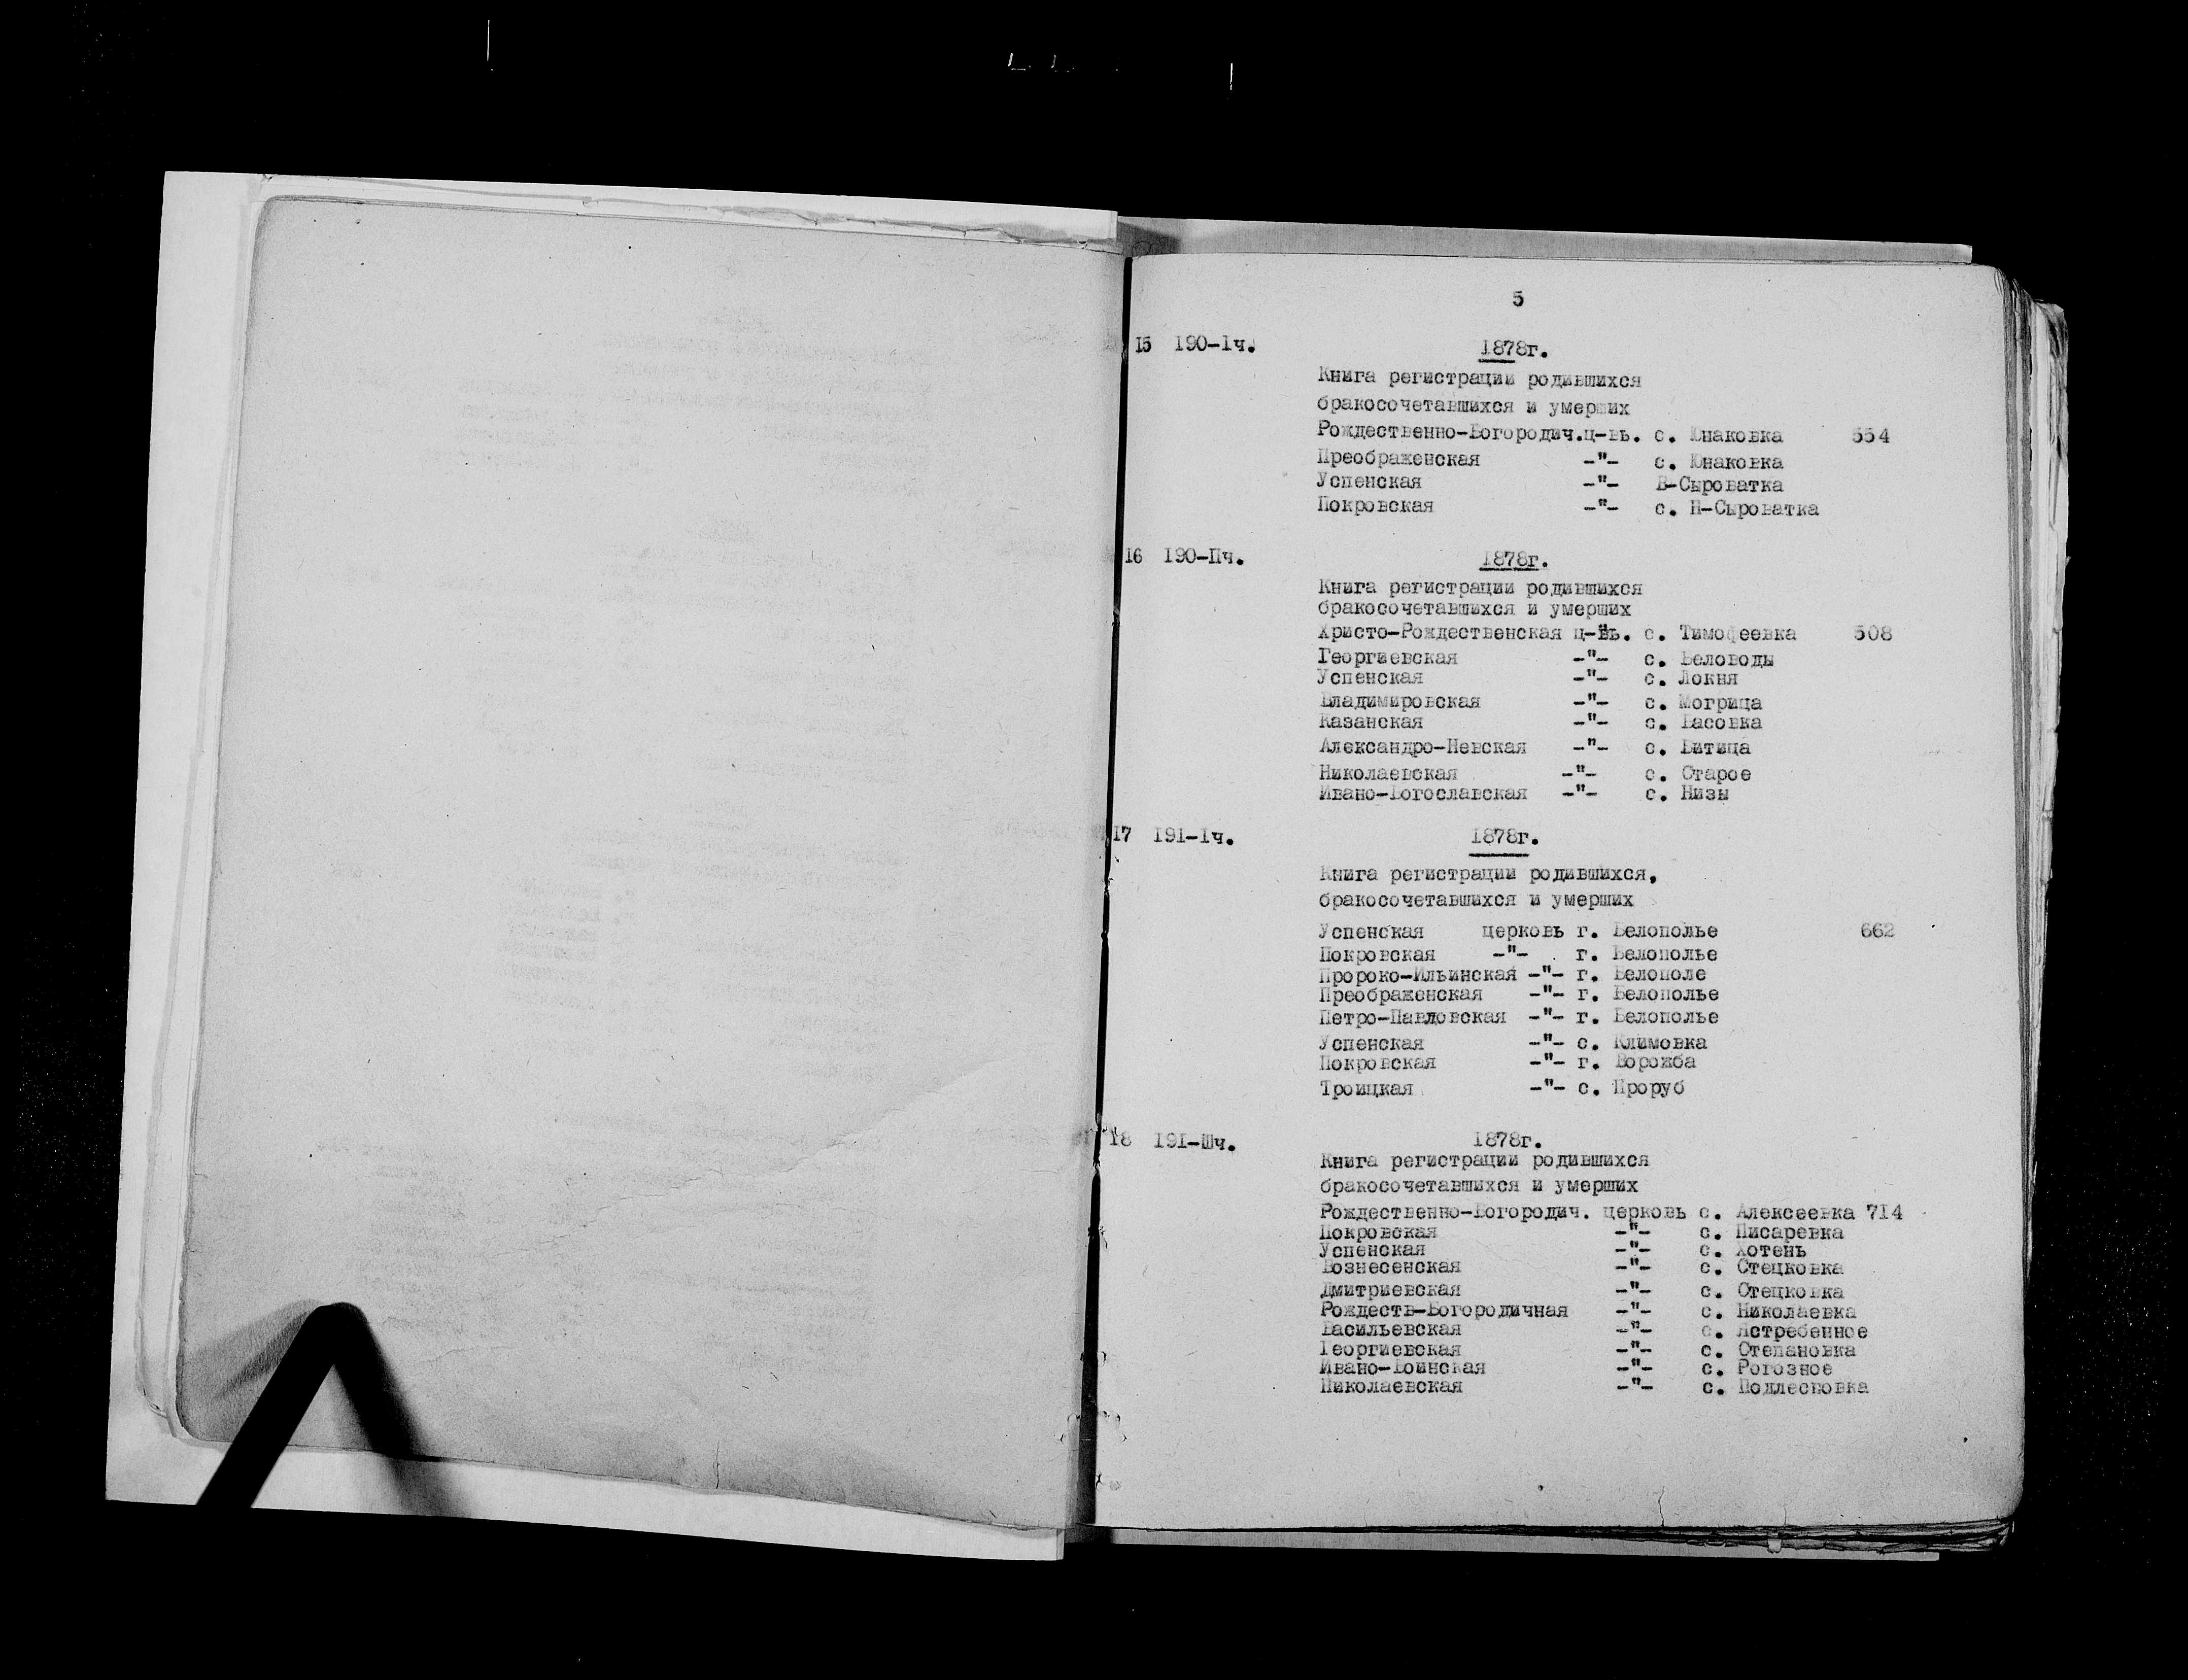 5
15 190-1ч. 1878г.
Книга регистрации родившихся
бракосочетавшихся и умерших
Рождественно-Богородич.ц-вь. с. Юнаковка 554
Преображенская -"- с. Юнаковка
Успенская -"- В-Сыроватка
Покровская -"- с. Н-Сыроватка
16 190-Пч. 1878г.
Книга регистрации родившихся
бракосочетавшихся и умерших
Христо-Рождественская ц-вь. с. Тимофеевка 508
Георгиевская -"- с. Беловоды
Успенская -"- с. Локня
Владимировская -"- с. Могрица
Казанская -"- с. Басовка
Александро-Невская -"- с. Битица
Николаевская -"- с. Старое
Ивано-Богославская -"- с. Низы
17 191-1ч. 1878г.
Книга регистрации родившихся,
бракосочетавшихся и умерших
Успенская церковь г. Белополье 662
Покровская -"- г. Белополье
Пророко-Ильинская -"- г. Белополе
Преображенская -"- г. Белополье
Петро-Павловская -"- г. Белополье
Успенская -"- с. Климовка
Покровская -"- г. Ворожба
Троицкая -"- с. Проруб
18 191-Шч. 1878г.
Книга регистрации родившихся
бракосочетавшихся и умерших
Рождественно-Богородич. церковь с. Алексеевка 714
Покровская -"- с. Писаревка
Успенская -"- с. Хотень
Вознесенская -"- с. Стецковка
Дмитриевская -"- с. Стецковка
Рождеств-Богородичная -"- с. Николаевка
Васильевская -"- с. Ястребенное
Георгиевская -"- с. Степановка
Ивано-Воинская -"- с. Рогозное
Николаевская -"- с. Подлесновка